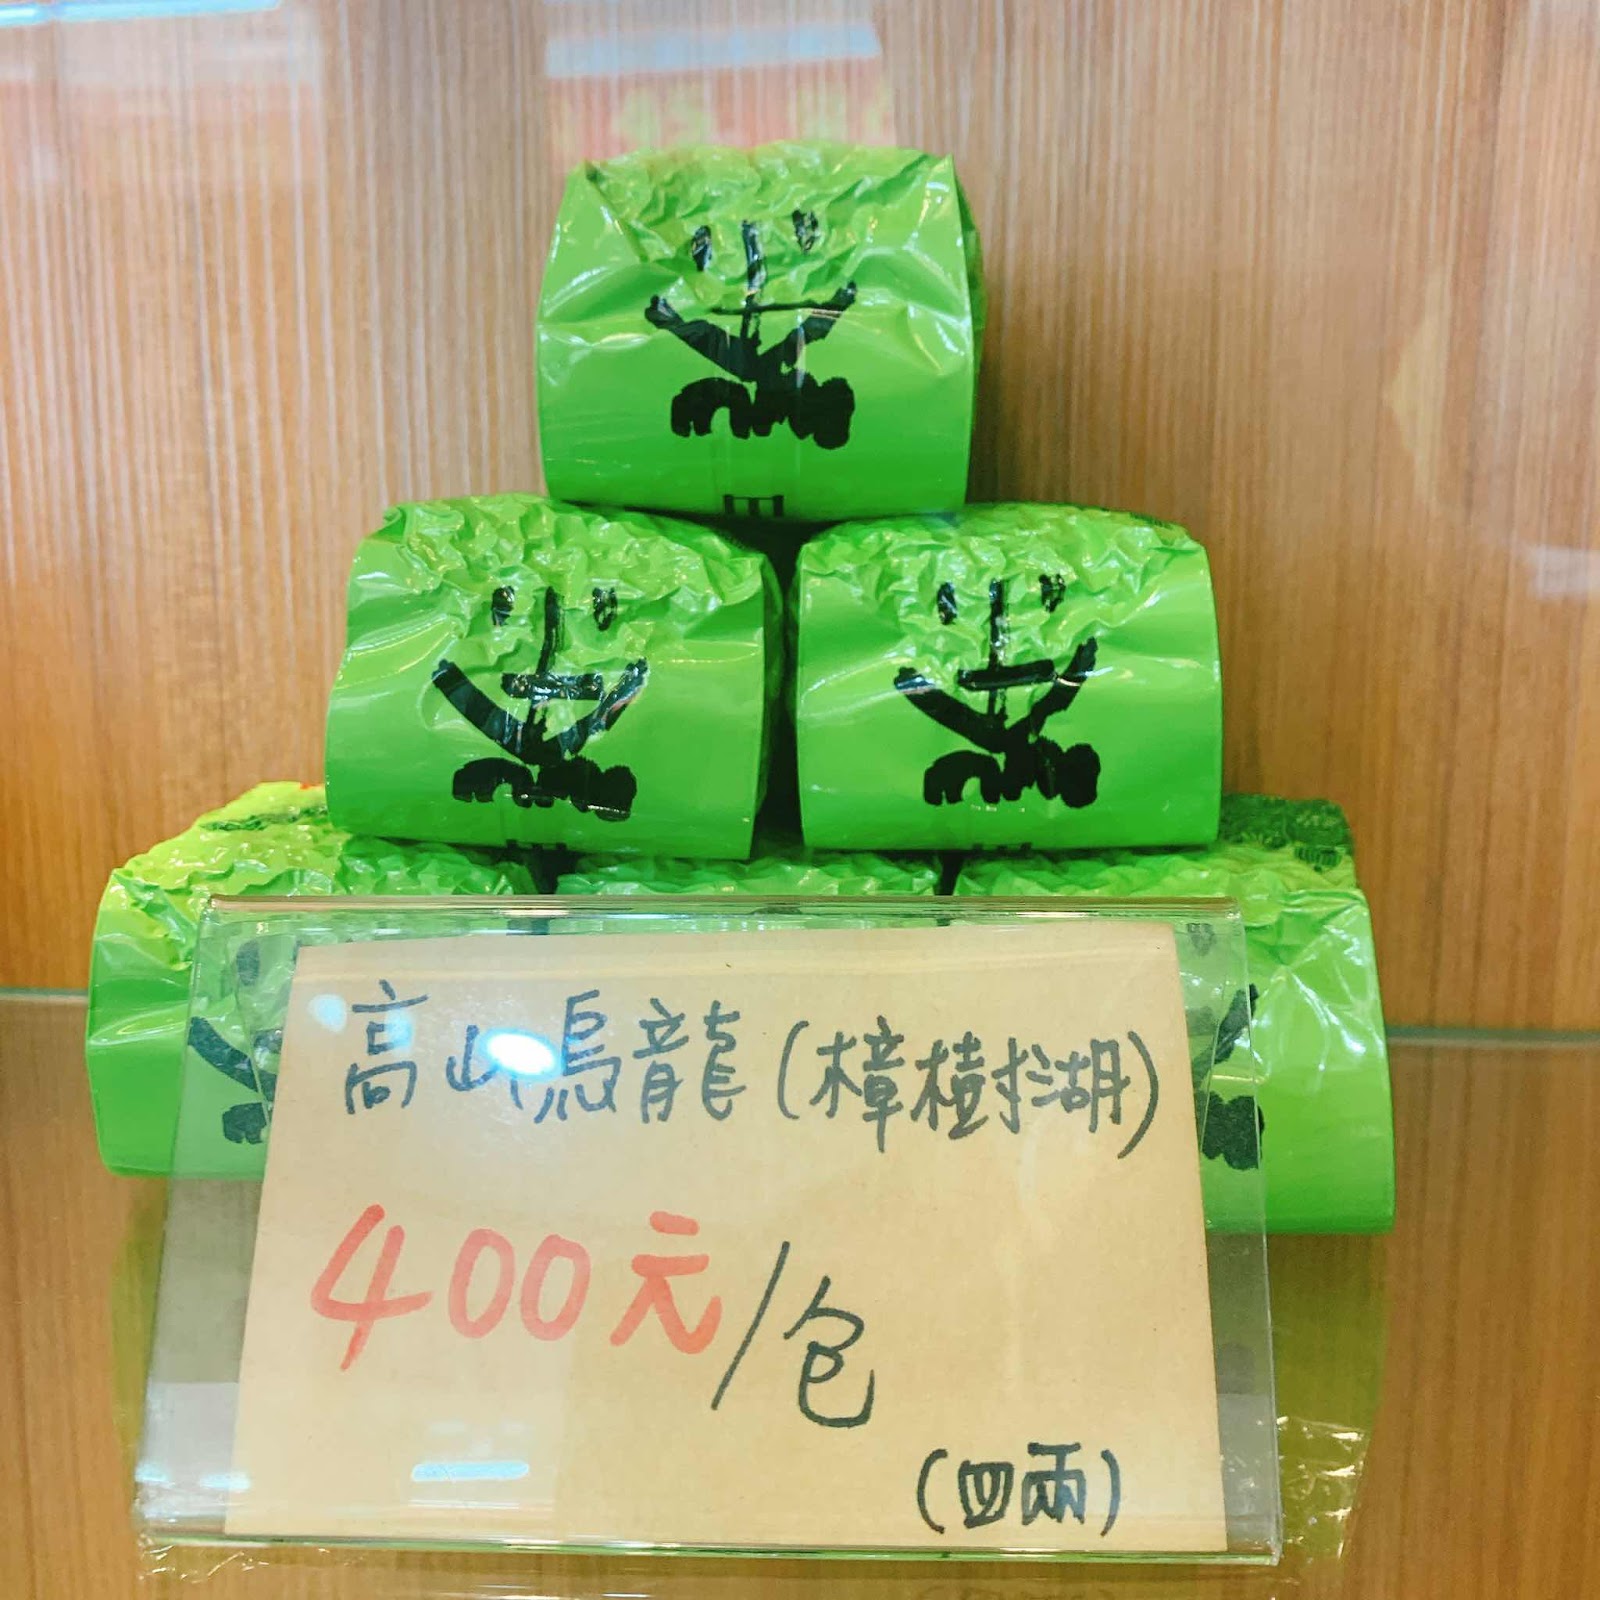 高山烏龍(樟樹湖)
400元/包
(四兩)